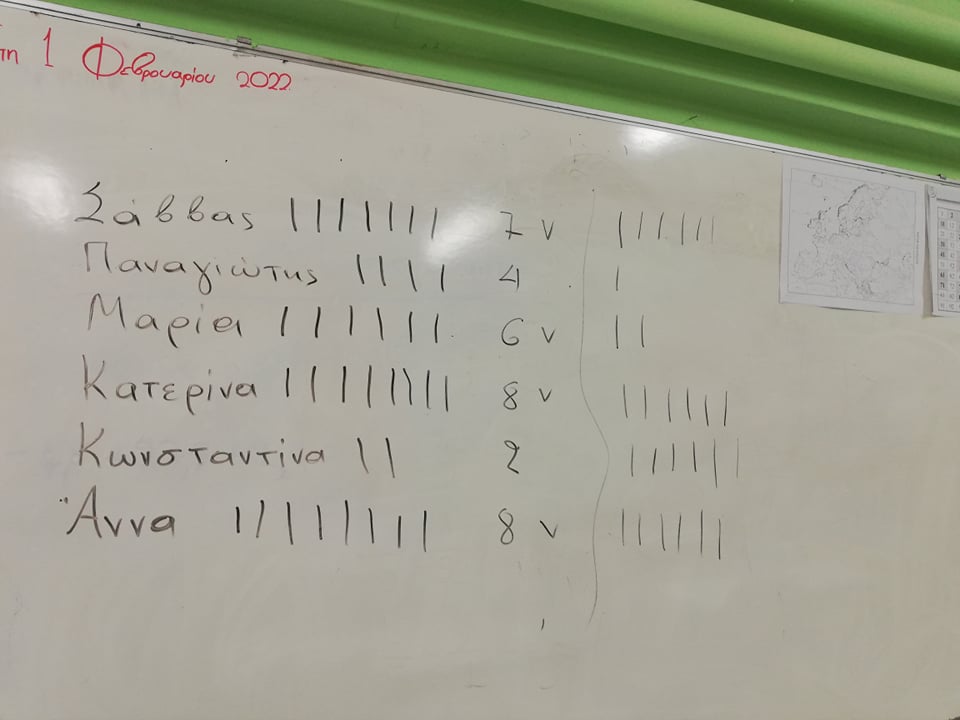 τη 1 Φεβρουαρίου 2022
Σάββας ||||||| 7 v ||||||
Παναγιώτης |||| 4 |
Μαρία |||||| 6 v ||
Κατερίνα |||||||| 8 v ||||||
Κωνσταντίνα || 2 ||||||
Άννα |||||||| 8 v ||||||